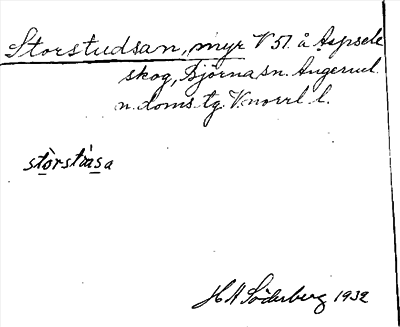 Storstudsan, myr V 51. å Aspsele
skog, Björna sn. Ångerml.
n. doms tg. V:norrl. l.
stòrstùsa
H H Söderberg 1932